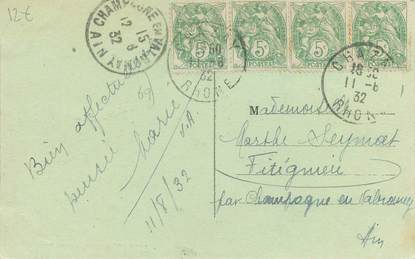 12€
CHAMPAGNE EN VALROMEY AIN
12 15
8
32
5c 5c 5c 5c
POSTES
RHONE
18 30
11-8
32
RHONE
69
Bien affectueuse
pensée Marie
11/8/32
Mademoiselle
Marthe Seymat
Fitignieu
par Champagne en Valromey
Ain